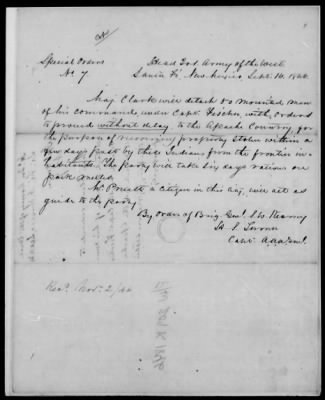 Special Orders
No 7
Head Qrs Army of the West
Santa Fé New Mexico Sept. 16. 1846
Maj Clark will detach 50 mounted men
of his command under Capt. Fischer, with orders
to proceed without delay to the Apache Country for
the purpose of recovering property stolen within a
few days past by those Indians from the frontier in-
habitants. The party will take six days rations on
pack mules.
Mr a citizen in this city, will act as
guide to the party.
By Order of Brig. Genl. S W Kearny
H. S. Turner
Capt. A.A.A. Genl.
Recd. Nov. 2/46